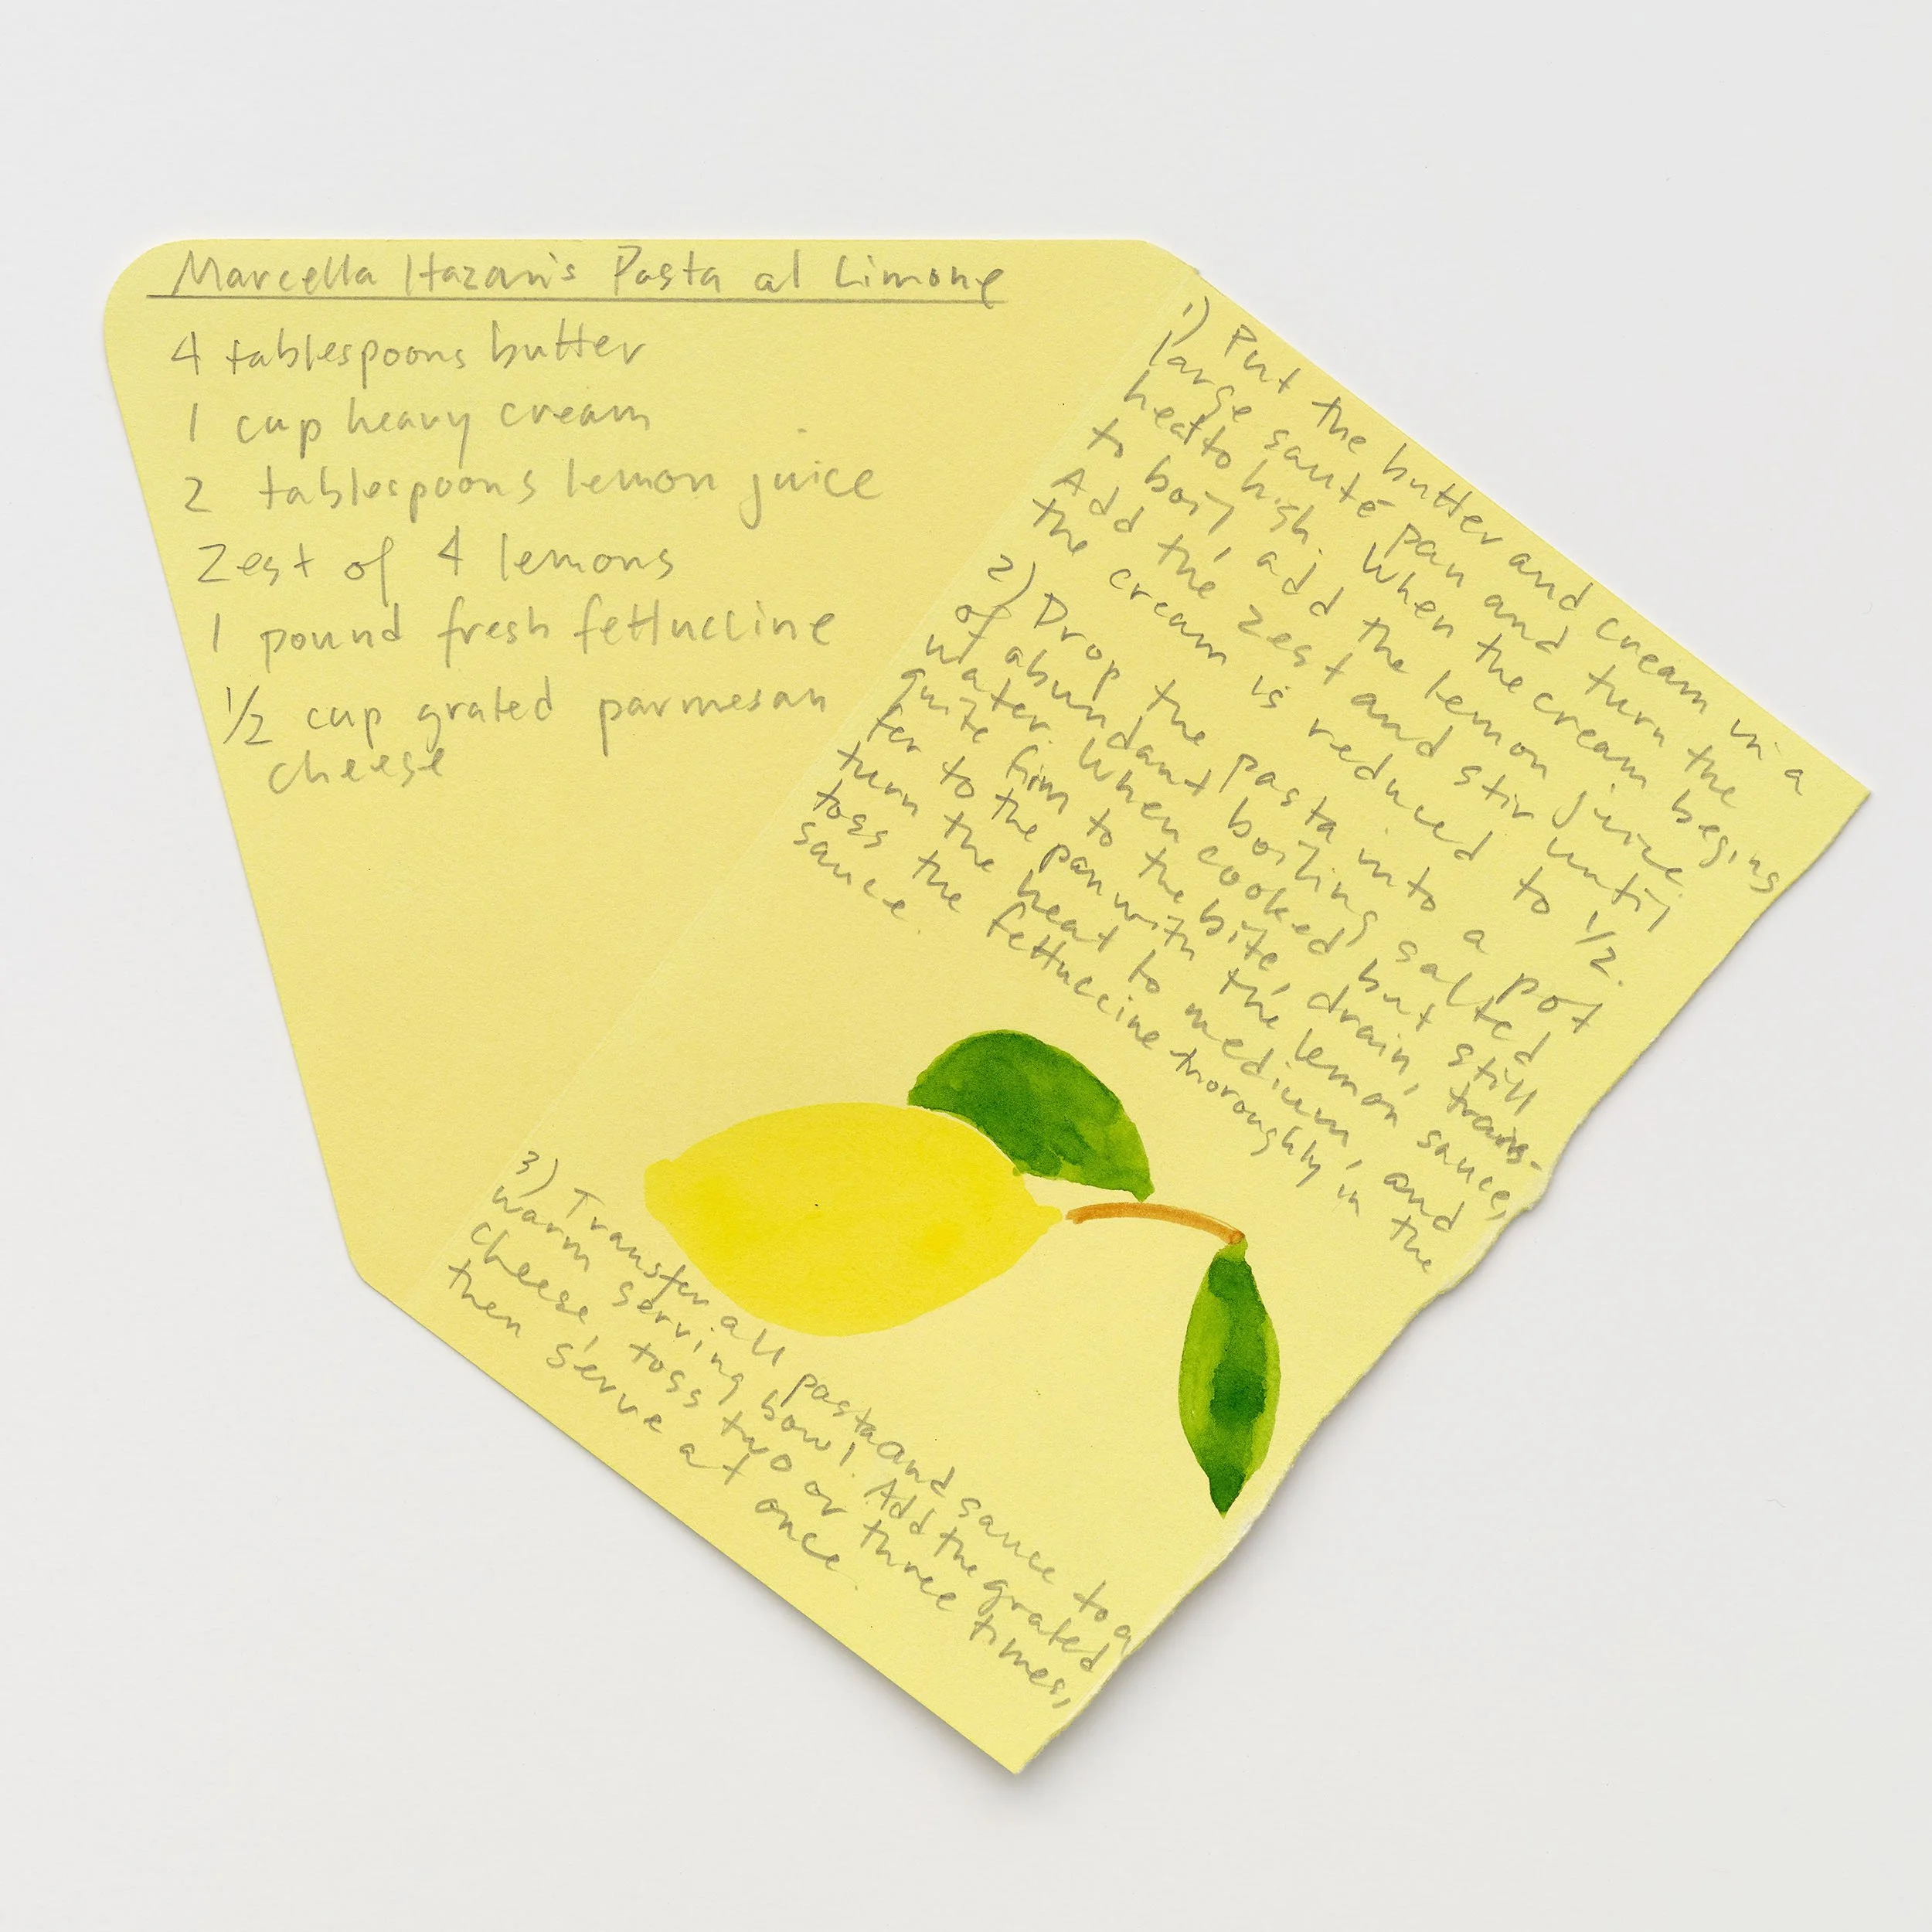 Marcella Hazan's Pasta al Limone
4 tablespoons butter
1 cup heavy cream
2 tablespoons lemon juice
Zest of 4 lemons
1 pound fresh fettuccine
1/2 cup grated parmesan
cheese
1) Put the butter and cream in a
large sauté pan and turn the
heat to high. When the cream begins
to boil, add the lemon juice.
Add the zest and stir until
the cream is reduced to 1/2.
2) Drop the pasta into a pot
of abundant boiling salted
water. When cooked but still
quite firm to the bite, drain, trans-
fer to the pan with the lemon sauce,
turn the heat to medium, and
toss the fettuccine thoroughly in the
sauce.
3) Transfer all pasta and sauce to a
warm serving bowl. Add the grated
cheese, toss two or three times,
then serve at once.